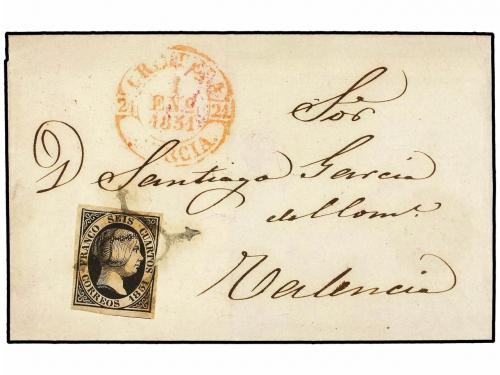 1
24 ENE 24
1851
MURCIA.
Sór
D Santiago Garcia
del Com.º
Valencia
FRANCO SEIS CUARTOS
CORREOS 1851